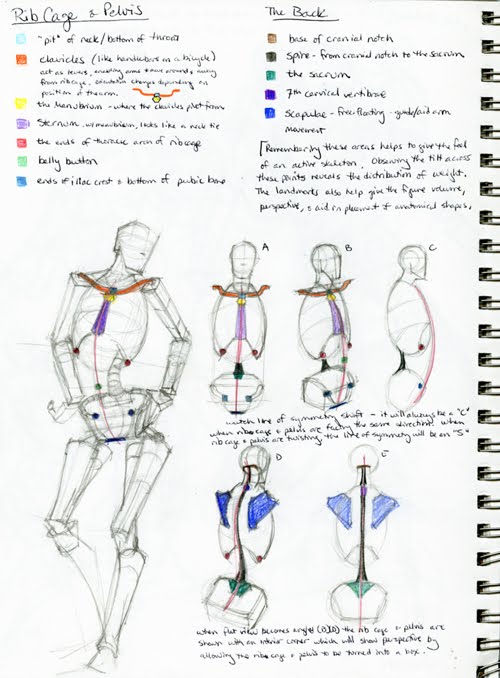 Rib Cage & Pelvis
"pit" of neck/bottom of throat
clavicles (like handlebars on a bicycle)
act as levers, enabling arms to move around & away
from ribcage, orientation changes depending on
position of the arm.
the Manubrium - where the clavicles pilot from
Sternum, w/manubrium, looks like a neck tie
the ends of thoracic arch of ribcage
belly button
ends of iliac crest & bottom of pubic bone
The Back
base of cranial notch
spine - from cranial notch to the sacrum
the sacrum
7th cervical vertibrae
Scapulae - free floating - guide/aid arm
movement
[Remembering these areas helps to give the feel
of an active skeleton. Observing the tilt across
these points reveals the distribution of weight.
The landmarks also help give the figure volume,
perspective, & aid in placement of anatomical shapes.
A
B
C
watch line of symmetry shift - it will always be a "C"
when ribcage & pelvis are facing the same direction. When
rib cage & pelvis are twisting, the line of symmetry will be an "S"
D
E
when flat view becomes angled the rib cage & pelvis are
shown with an interior corner which will show perspective by
allowing the ribcage & pelvis to be turned into a box.